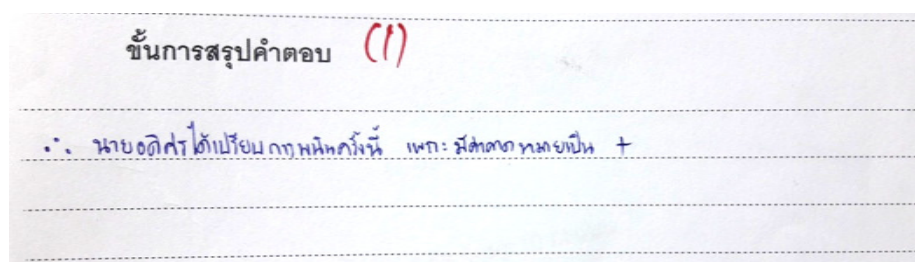 ขั้นการสรุปคำตอบ (1)
∴ นายอดิศรได้เปรียบการพนันครั้งนี้ เพราะมีค่าคาดหมายเป็น +